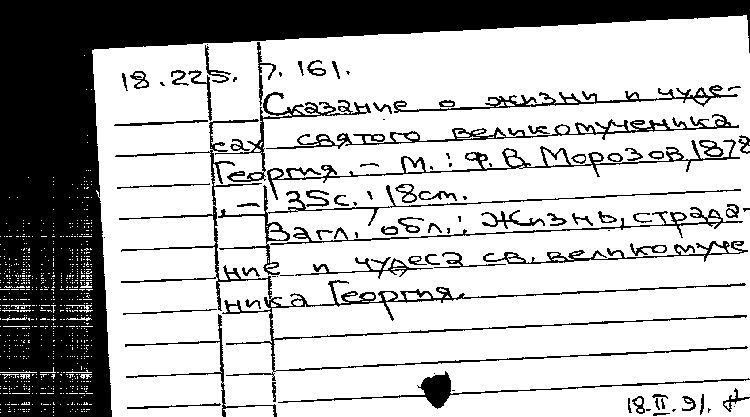 18.225. 7. 161.
Сказание о жизни и чуде-
сах святого великомученика
Георгия. - М. : Ф. В. Морозов, 1878
. - 35с. ; 18cm.
Загл. обл. : Жизнь, страда-
ние и чудеса св. великомуче
ника Георгия.
18.II.91.